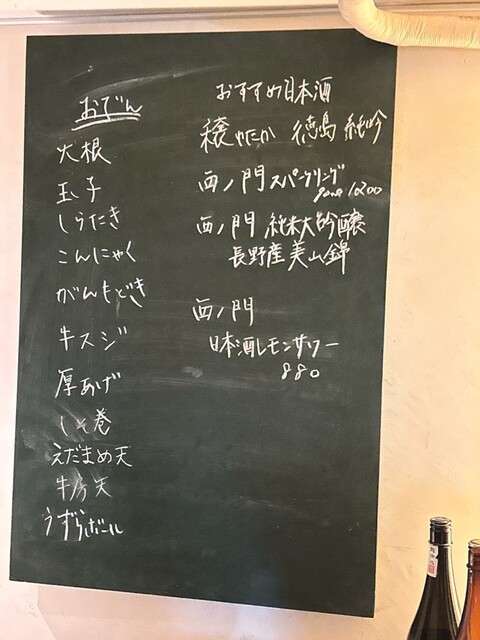 おでん
大根
玉子
しらたき
こんにゃく
がんもどき
牛スジ
厚あげ
しそ巻
えだまめ天
牛ぼう天
うずらボール
おすすめ日本酒
穣ゆたか 徳島 純吟
西ノ門 スパークリング
1200
西ノ門 純米大吟醸
長野産美山錦
西ノ門
日本酒レモンサワー
880